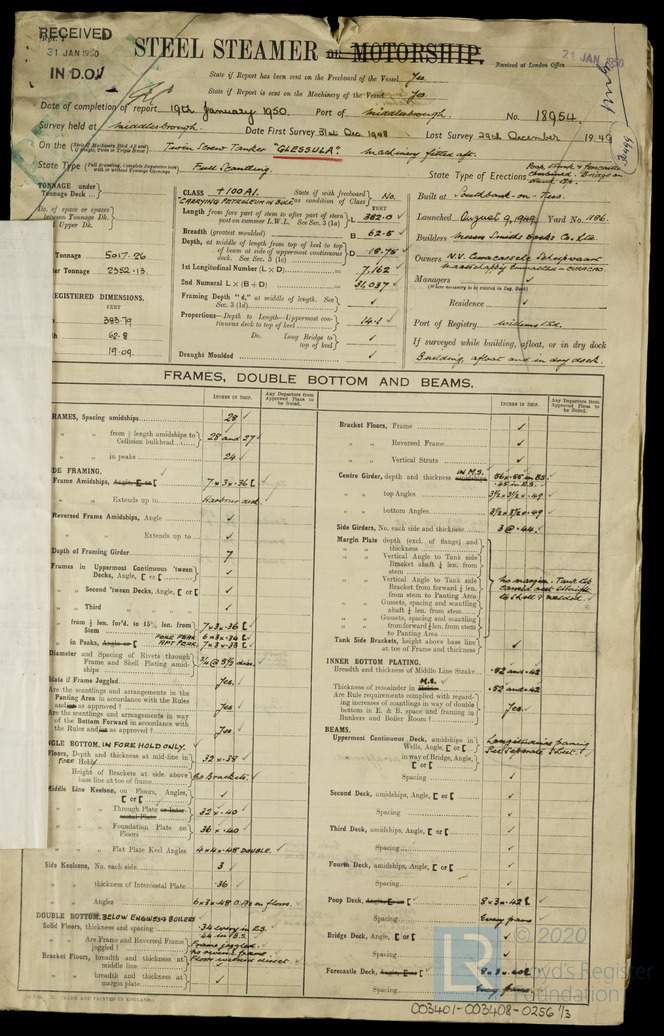 RECEIVED
31 JAN 1950
IN D.O.
21 JAN 1950
STEEL STEAMER or MOTORSHIP.
Received at London Office
State if Report has been sent on the Freeboard of the Vessel Yes
State if Report is sent on the Machinery of the Vessel Yes
Date of completion of report 19th January 1950. Port of Middlesbrough. No. 18954.
Survey held at Middlesbrough. Date First Survey 31st Dec. 1948 Last Survey 29th December 1949
On the Twin Screw Tanker "GLESSULA". Machinery fitted aft.
State Type Full Scantling. State Type of Erections
TONNAGE under
Tonnage Deck ...
Do. of space or spaces
between Tonnage Dk.
Upper Dk.
Tonnage 5017.26
er Tonnage 2352.13
REGISTERED DIMENSIONS.
FEET
383.79
62.8
19.09.
CLASS +100A1. State if with freeboard as condition of Class No.
"CARRYING PETROLEUM IN BULK"
Length from fore part of stem to after part of stern post on summer L.W.L. See Sec. 3 (1a) L 382.0
Breadth (greatest moulded) B 62.5
Depth, at middle of length from top of keel to top of beam at side of uppermost continuous deck. See Sec. 3 (1c) D 18.75
1st Longitudinal Number (L × D) = 7,162
2nd Numeral L × (B + D) = 31,037
Framing Depth "d," at middle of length. See Sec. 3 (1d)
Proportions—Depth to Length—Uppermost continuous deck to top of keel 14.1
Do. Long Bridge to top of keel
Draught Moulded
Built at Southbank-on-Tees.
Launched August 9, 1949 Yard No. 1186.
Builders Messrs Smiths Docks Co. Ltd.
Owners N.V. Curacaosche Scheepvaart
Maatschappij
Managers
(Where necessary to be entered in Reg. Book)
Residence
Port of Registry Willemstad.
If surveyed while building, afloat, or in dry dock
Building, afloat and in dry dock.
FRAMES, DOUBLE BOTTOM AND BEAMS.
INCHES IN SHIP. Any Departure from Approved Plans to be Noted.
INCHES IN SHIP. Any Departure from Approved Plans to be Noted.
RAMES, Spacing amidships 28
" " from ⅕ length amidships to Collision bulkhead 28 and 27
" " in peaks 24
DE FRAMING.
Frame Amidships, Angle, E or [ 7 x 3 x .36 [
" " Extends up to
Reversed Frame Amidships, Angle
" " Extends up to
Depth of Framing Girder 7
Frames in Uppermost Continuous 'tween Decks, Angle, [ or [
" " Second 'tween Decks, Angle, [ or [
" " Third " "
" from ⅕ len. for'd. to 15% len. from Stem 7 x 3 x .36 [
" in Peaks, Angle or [ FORE PEAK 6 x 3 x .36 [
AFT PEAK 7 x 3 x .35 [
Diameter and Spacing of Rivets through Frame and Shell Plating amidships
State if Frame Joggled Yes.
Are the scantlings and arrangements in the Panting Area in accordance with the Rules and/or as approved ! Yes
Are the scantlings and arrangements in way of the Bottom Forward in accordance with the Rules and/or as approved ! Yes.
NGLE BOTTOM, IN FORE HOLD ONLY.
Floors, Depth and thickness at mid-line in FORE Hold 32 x .38
Height of Brackets at side above base at toe of frame No Brackets.
Middle Line Keelson, on Floors, Angles, [ or [
" " Through Plate or Intercostal Plate 32 x .40
" " Foundation Plate on Floors 36 x .40
" " Flat Plate Keel Angles 4 x 4 x .48 DOUBLE.
Side Keelsons, No. each side 3
" " thickness of Intercostal Plate .36
" " Angles 6 x 3 x .48 O.A. on floors.
DOUBLE BOTTOM. BELOW ENGINES & BOILERS
Solid Floors, thickness and spacing .34 every in E.S.
.44 in B.S.
Are Frame and Reversed Frame joggled ! Frame joggled.
No reverse frame
Bracket Floors, breadth and thickness at middle line
" " breadth and thickness at margin plate
Bracket Floors, Frame
" " Reversed Frame
" " Vertical Struts
Centre Girder, depth and thickness amidships IN M.S. 56 x .55 in B.S.
.45 in E.S.
" " top Angles 3½ x 3½ x .49
" " bottom Angles 3½ x 3½ x .49
Side Girders, No. each side and thickness 3 @ .44
Margin Plate depth (excl. of flange) and thickness
" " Vertical Angle to Tank side Bracket abaft ¼ len. from stem
" " Vertical Angle to Tank side Bracket from forward ¼ len. from stem to Panting Area
" " Gussets, spacing and scantling abaft ¼ len. from stem
" " Gussets, spacing and scantling from forward ¼ len. from stem to Panting Area
No margin. Tank top carried out straight to shell & welded.
Tank Side Brackets, height above base line at toe of Frame and thickness
INNER BOTTOM PLATING.
Breadth and thickness of Middle Line Strake .52 and .42
Thickness of remainder in Holds M.S. .52 and .42
Are Rule requirements complied with regarding increases of scantlings in way of double bottom in E. & B. space and framing in Bunkers and Boiler Room ! Yes.
BEAMS.
Uppermost Continuous Deck, amidships in Wells, Angle, [ or [
" " in way of Bridge, Angle, [ or [
Longitudinal framing
See Separate Sheet.
Spacing
Second Deck, amidships, Angle, [ or [
Spacing
Third Deck, amidships, Angle, [ or [
Spacing
Fourth Deck, amidships, Angle, [ or [
Spacing
Poop Deck, Angle, E or [ 8 x 3 x .42 [
Spacing Every frame
Bridge Deck, Angle, [ or [
Spacing
Forecastle Deck, Angle, E or [ 8 x 3 x .42 [
Spacing Every frame
(MADE AND PRINTED IN ENGLAND.)
© 2020
Lloyd's Register
Foundation
LR
003401-003408-0256 1/3